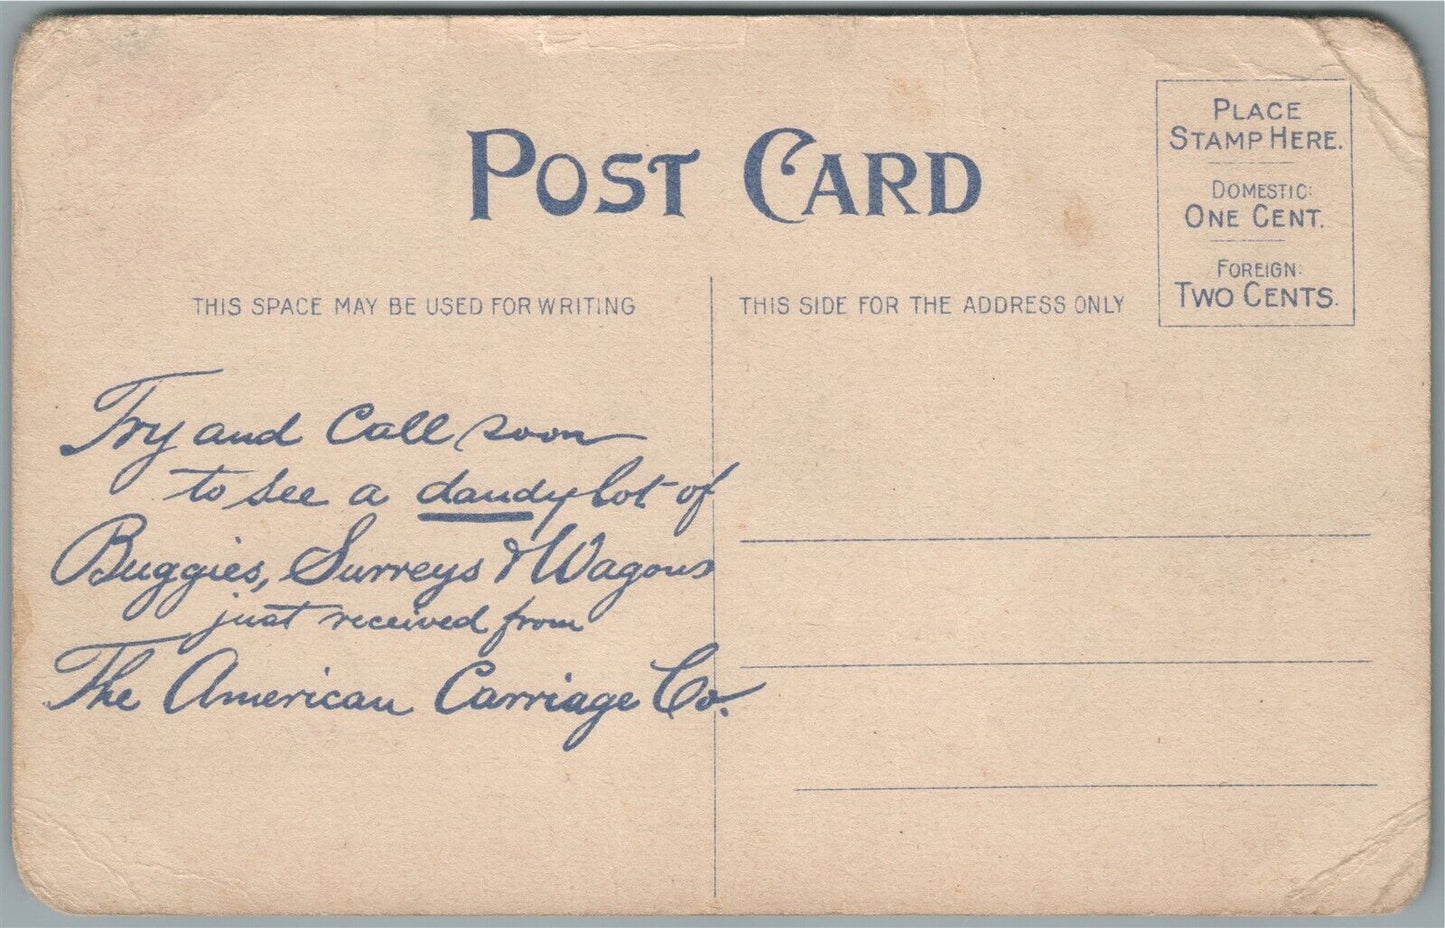 POST CARD
PLACE
STAMP HERE.
DOMESTIC:
ONE CENT.
FOREIGN:
TWO CENTS.
THIS SPACE MAY BE USED FOR WRITING
THIS SIDE FOR THE ADDRESS ONLY
Try and Call soon
to see a dandy lot of
Buggies, Surreys & Wagons
just received from
The American Carriage Co.